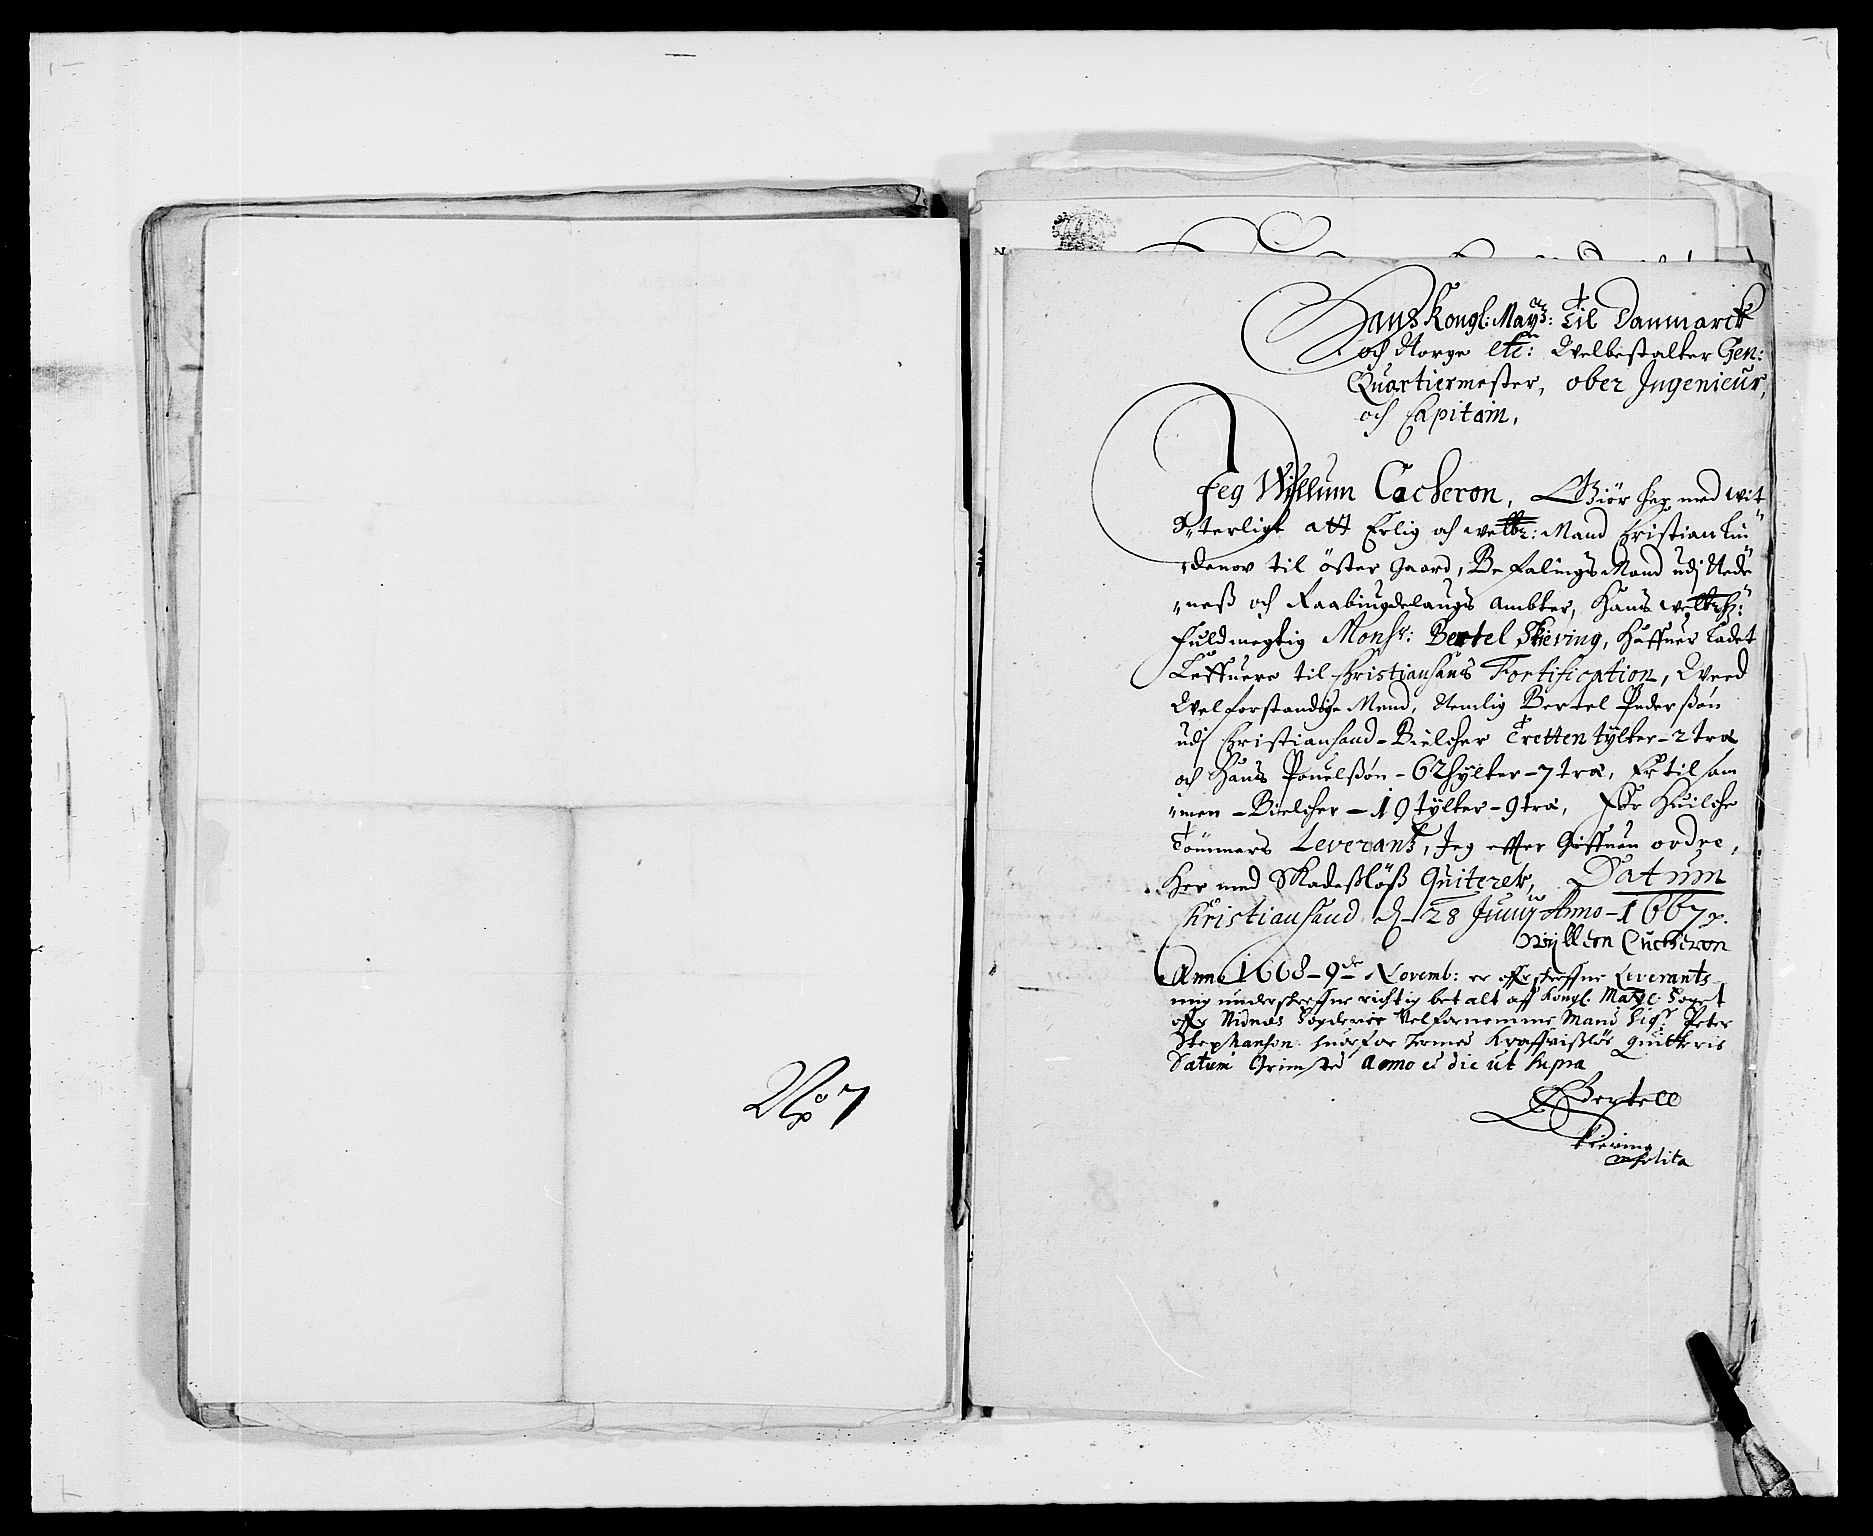 No 7
Hans Kongl: May: til Danmarck
och Norge etc: Welbestalter Gen:
Quartiermester, ober Ingenieur,
och Capitain,
Jeg Willum Cacheron, Giör her med wit
terligt att Erlig och welb: Mand Christian Lin
denov til öster Gaard, Befalings Mand udj Nede
neß och Raabingdelaugs Ambter, Hans
fuldmegtig Monsr: Bertel Skiering, Haffuer Ladet
Leffuere til Christiansands Fortification, Weed
Welforstandige Mend, Nemlig Bertel Pederßön
udj Christiansand - Bielcher Tretten tÿlter - 2 træ
och Hans Pouelßön - 6 tÿlter - 7 træ, Er tilsam
men - Bielcher - 19 tÿlter - 9 træ, For Huilche
Tömmers Leverantz, Jeg effter Giffuen ordre,
Her med Skadeßlöß Quiterer, Datum
Christiansand d. 28 Junij Anno - 1667
Wyllem Cucheron
Anno 1668 - 9de Novemb: er leverants
mig underskreffne richtig betalt aff Kongl. Maytz: Foget
offr Nidnæs Fogderie Velfornemme Mand Sigr Peter
Stephanson huorfor hermed Quitteris
Datum Grimsted Anno et die ut supra
Bertell
Skiering